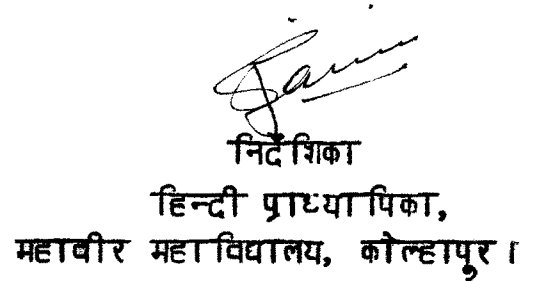 निर्देशिका
हिन्दी प्राध्यापिका,
महावीर महाविद्यालय, कोल्हापुर ।